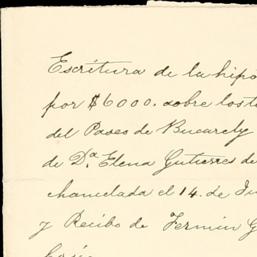 Escritura de la hipo
por $6000. sobre los te
del Paseo de Bucarely
de D.ª Elena Gutierres de
chancelada el 14. de Ju
y Recibo de Fermin G